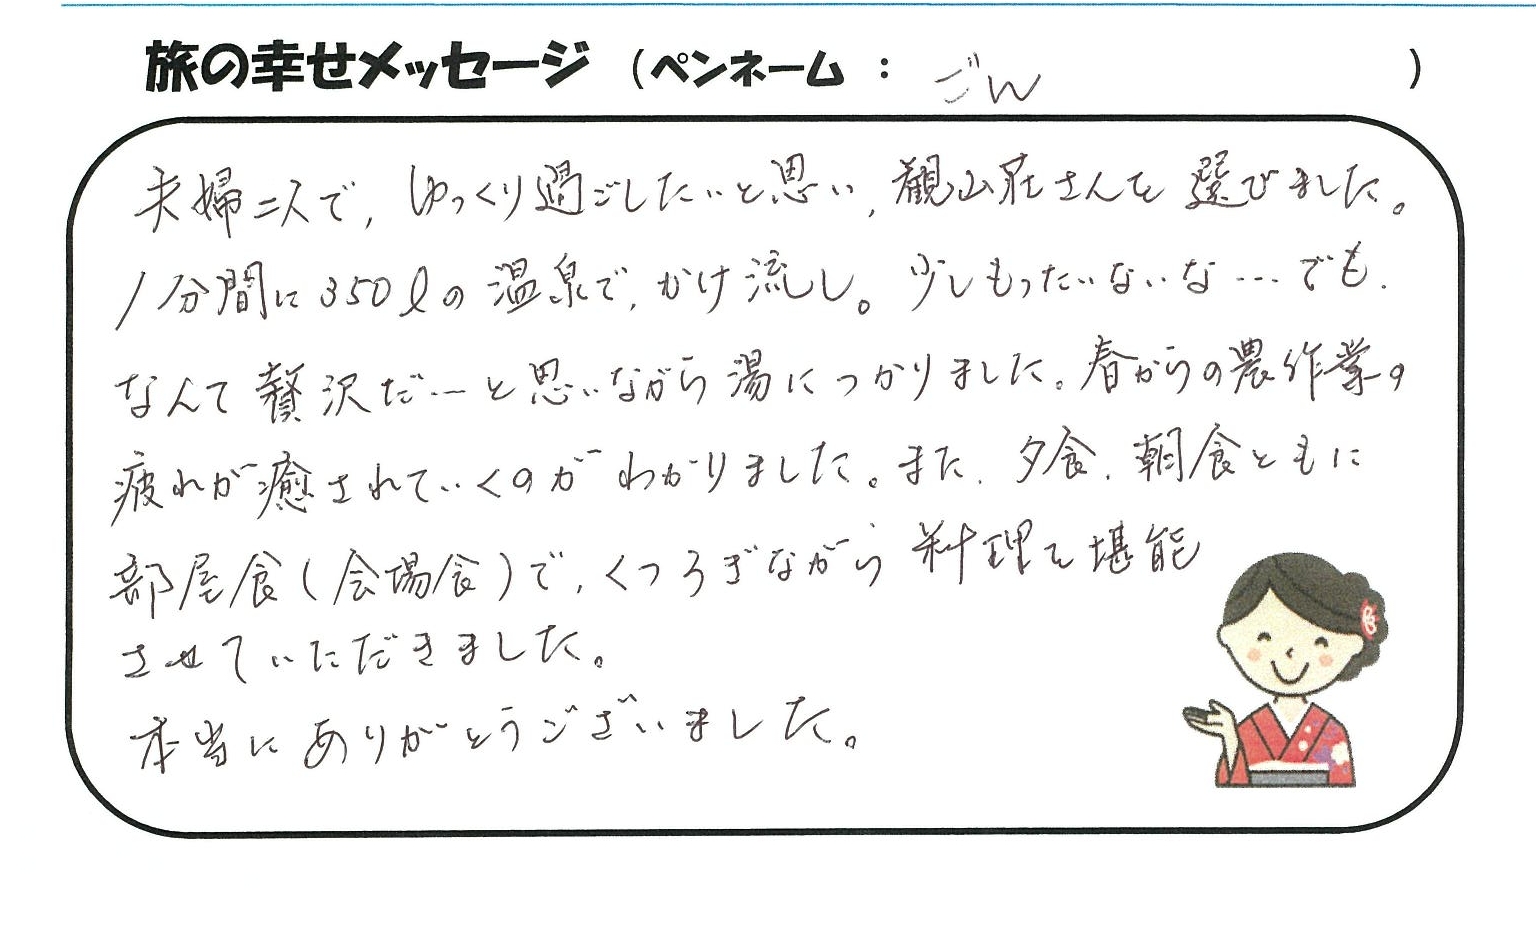 旅の幸せメッセージ (ペンネーム : ごん )
夫婦二人で、ゆっくり過ごしたいと思い、観山荘さんを選びました。
1分間に350ℓの温泉で、かけ流し。少しもったいないな…でも、
なんて贅沢だ…と思いながら湯につかりました。春からの農作業の
疲れが癒されていくのがわかりました。また、夕食、朝食ともに
部屋食(会場食)で、くつろぎながら料理を堪能
させていただきました。
本当にありがとうございました。